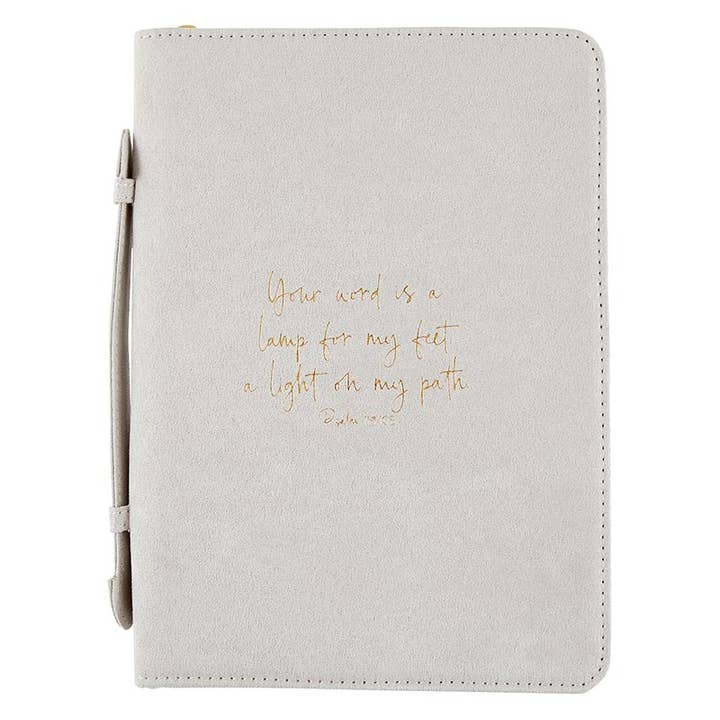 Your word is a
lamp for my feet
a light on my path.
Psalm